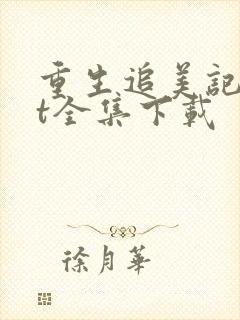 重生追美記
t全集下載
徐月華